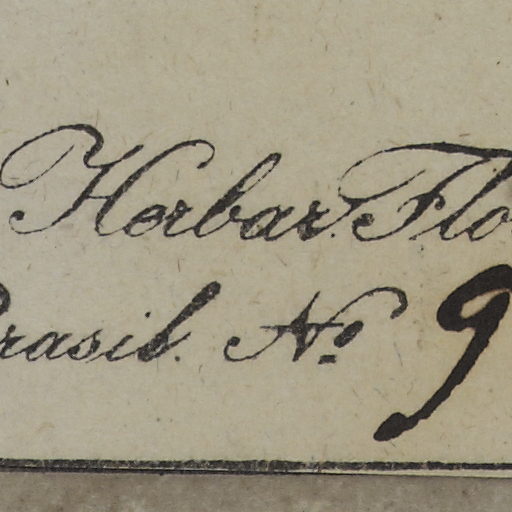 Herbar. Flo
Brasil. No. 9